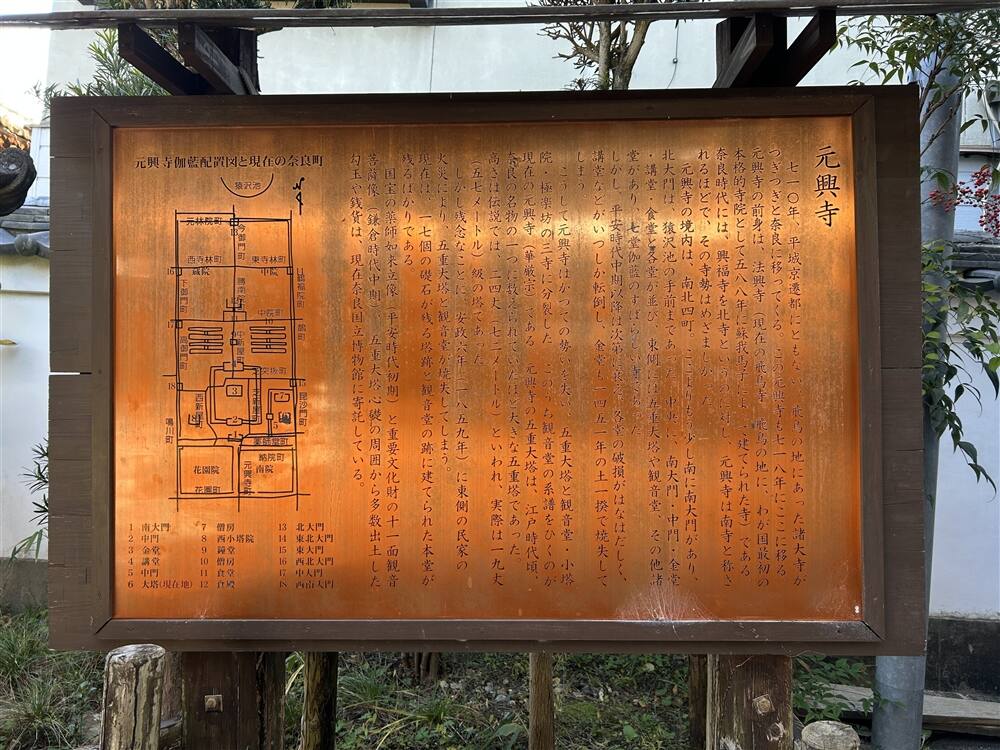 元興寺
七一〇年、平城京遷都にともない、飛鳥の地にあった諸大寺が
つぎつぎと奈良に移ってくる。この元興寺も七一八年にここに移る
元興寺の前身は、法興寺(現在の飛鳥寺 飛鳥の地に、わが国最初の
本格的寺院として五八八年に蘇我馬子によって建てられた寺)である
奈良時代には、興福寺を北寺というのに対し、元興寺は南寺と称さ
れるほどで、その寺勢はめざましかった。
元興寺の境内は、南北四町、ここよりもう少し南に南大門があり、
北大門は、猿沢池の手前まであった。中央に、南大門・中門・金堂
・講堂・食堂と各堂が並び、東側には五重大塔や観音堂、その他諸
堂があり、七堂伽藍のすばらしい寺であった
しかし、平安時代中期以降は次第に衰え、各堂の破損がはなはだしく、
講堂などがいつしか転倒し、金堂も一四五一年の土一揆で焼失して
しまう
こうして元興寺はかつての勢いを失い、五重大塔と観音堂・小塔
院・極楽坊の三寺に分裂した このうち観音堂の系譜をひくのが
現在の元興寺(華厳宗)である 元興寺の五重大塔は、江戸時代頃、
奈良の名物の一つに数えられていたほど大きな五重塔であった
高さは伝説では、二四丈(七二メートル)といわれ、実際は一九丈
(五七メートル)級の塔であった
しかし残念なことに、安政六年(一八五九年)に東側の民家の
火災により、五重大塔と観音堂が焼失してしまう。
現在は、一七個の礎石が残る塔跡と観音堂の跡に建てられた本堂が
残るばかりである。
国宝の薬師如来立像(平安時代初期)と重要文化財の十一面観音
菩薩像(鎌倉時代中期)、五重大塔心礎の周囲から多数出土した
勾玉や銭貨は、現在奈良国立博物館に寄託している。
元興寺伽藍配置図と現在の奈良町
猿沢池
元林院町
今御門町
西寺林町
東寺林町
蔵院
中院
鶴福院町
下御門町
勝南院
中院町
鵲町
高御門町
中新屋町
突抜町
西新屋町
芝新屋町
毘沙門町
鳴川町
薬師堂町
納院町
花園院
南院
花園町
元興寺町
1 南大門
2 中門
3 金堂
4 講堂
5 中門
6 大塔(現在地)
7 僧房
8 西小塔院
9 鐘堂
10 僧房
11 食堂
12 食殿
13 北大門
14 東北大門
15 東大門
16 西北大門
17 中大門
18 西南大門